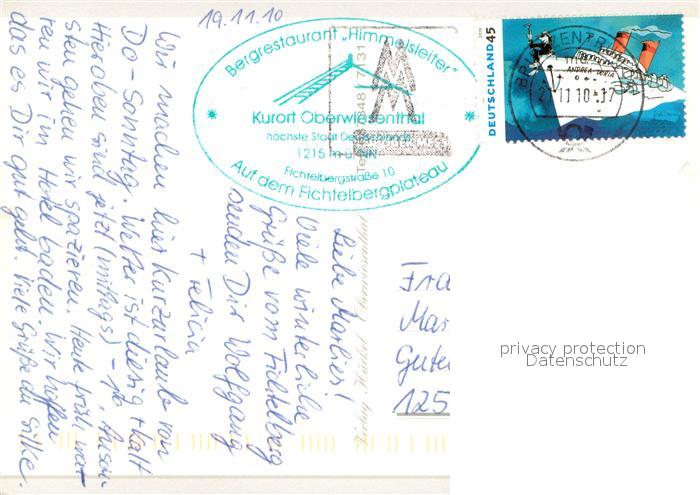 19.11.10
Bergrestaurant "Himmelsleiter"
Kurort Oberwiesenthal
höchste Stadt Deutschlands
1215 m ü. NN
Fichtelbergstraße 10
Auf dem Fichtelbergplateau
DEUTSCHLAND 45
ANDREA DORIA
BRIEFZENTRUM
11.10-17
Liebe Marlies!
Viele winterliche
Grüße vom Fichtelberg
senden Dir Wolfgang
+ Felicia
Wir machen hier Kurzurlaub von
Do - Sonntag. Wetter ist diesig + kalt
Hieroben sind jetzt (mittags) -1°.
sten gehen wir spazieren. Heute früh wa-
ren wir im Hotel baden. Wir hoffen
das es Dir gut geht. Viele Grüße an Silke.
Fra
Mar
Gute
125
privacy protection
Datenschutz